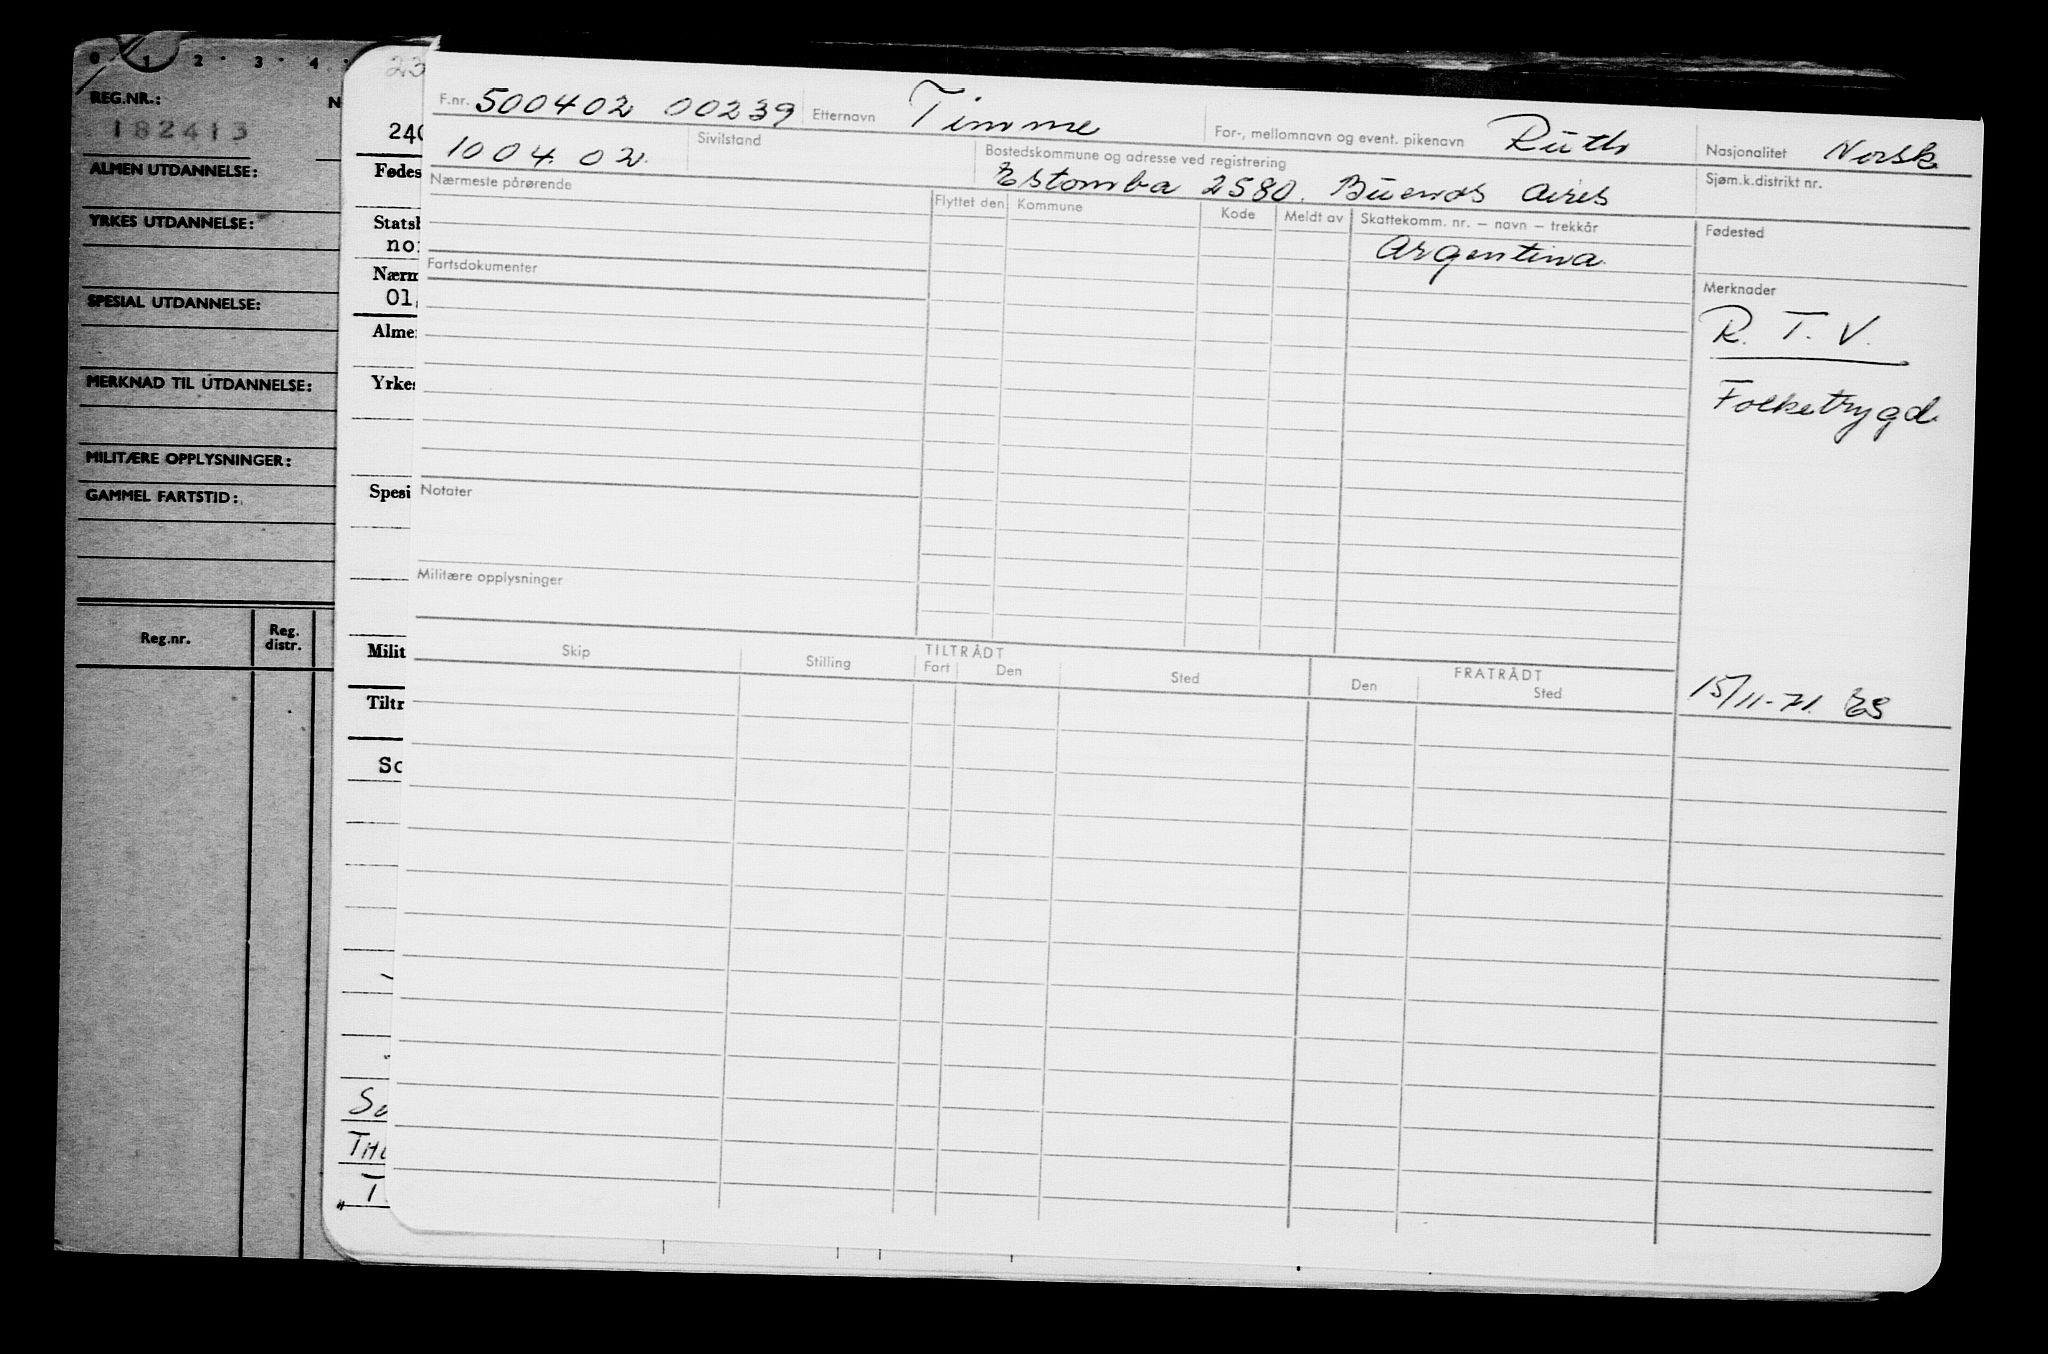 0 1 2 3 4
REG.NR.:
182413
ALMEN UTDANNELSE:
YRKES UTDANNELSE:
SPESIAL UTDANNELSE:
MERKNAD TIL UTDANNELSE:
MILITÆRE OPPLYSNINGER:
GAMMEL FARTSTID:
Reg.nr.
Reg. distr.
23
240
Fødes
Statsb
no
Nærm
01.
Alme
Yrkes
Spesi
Milit
Tiltr
Sc
F.nr. 500402 00239 Etternavn Timme For-, mellomnavn og event. pikenavn Ruth Nasjonalitet Norsk
10 04. 02. Sivilstand Bostedskommune og adresse ved registrering Estomba 2580. Buenos Aires Sjøm.k.distrikt nr.
Nærmeste pårørende Flyttet den Kommune Kode Meldt av Skattekomm. nr. – navn – trekkår Fødested
Argentina.
Fartsdokumenter
Merknader
R. T. V.
Folketrygd
Notater
Militære opplysninger
Skip Stilling TILTRÅDT Fart Den Sted FRATRÅDT Den Sted
15/11-71. ES